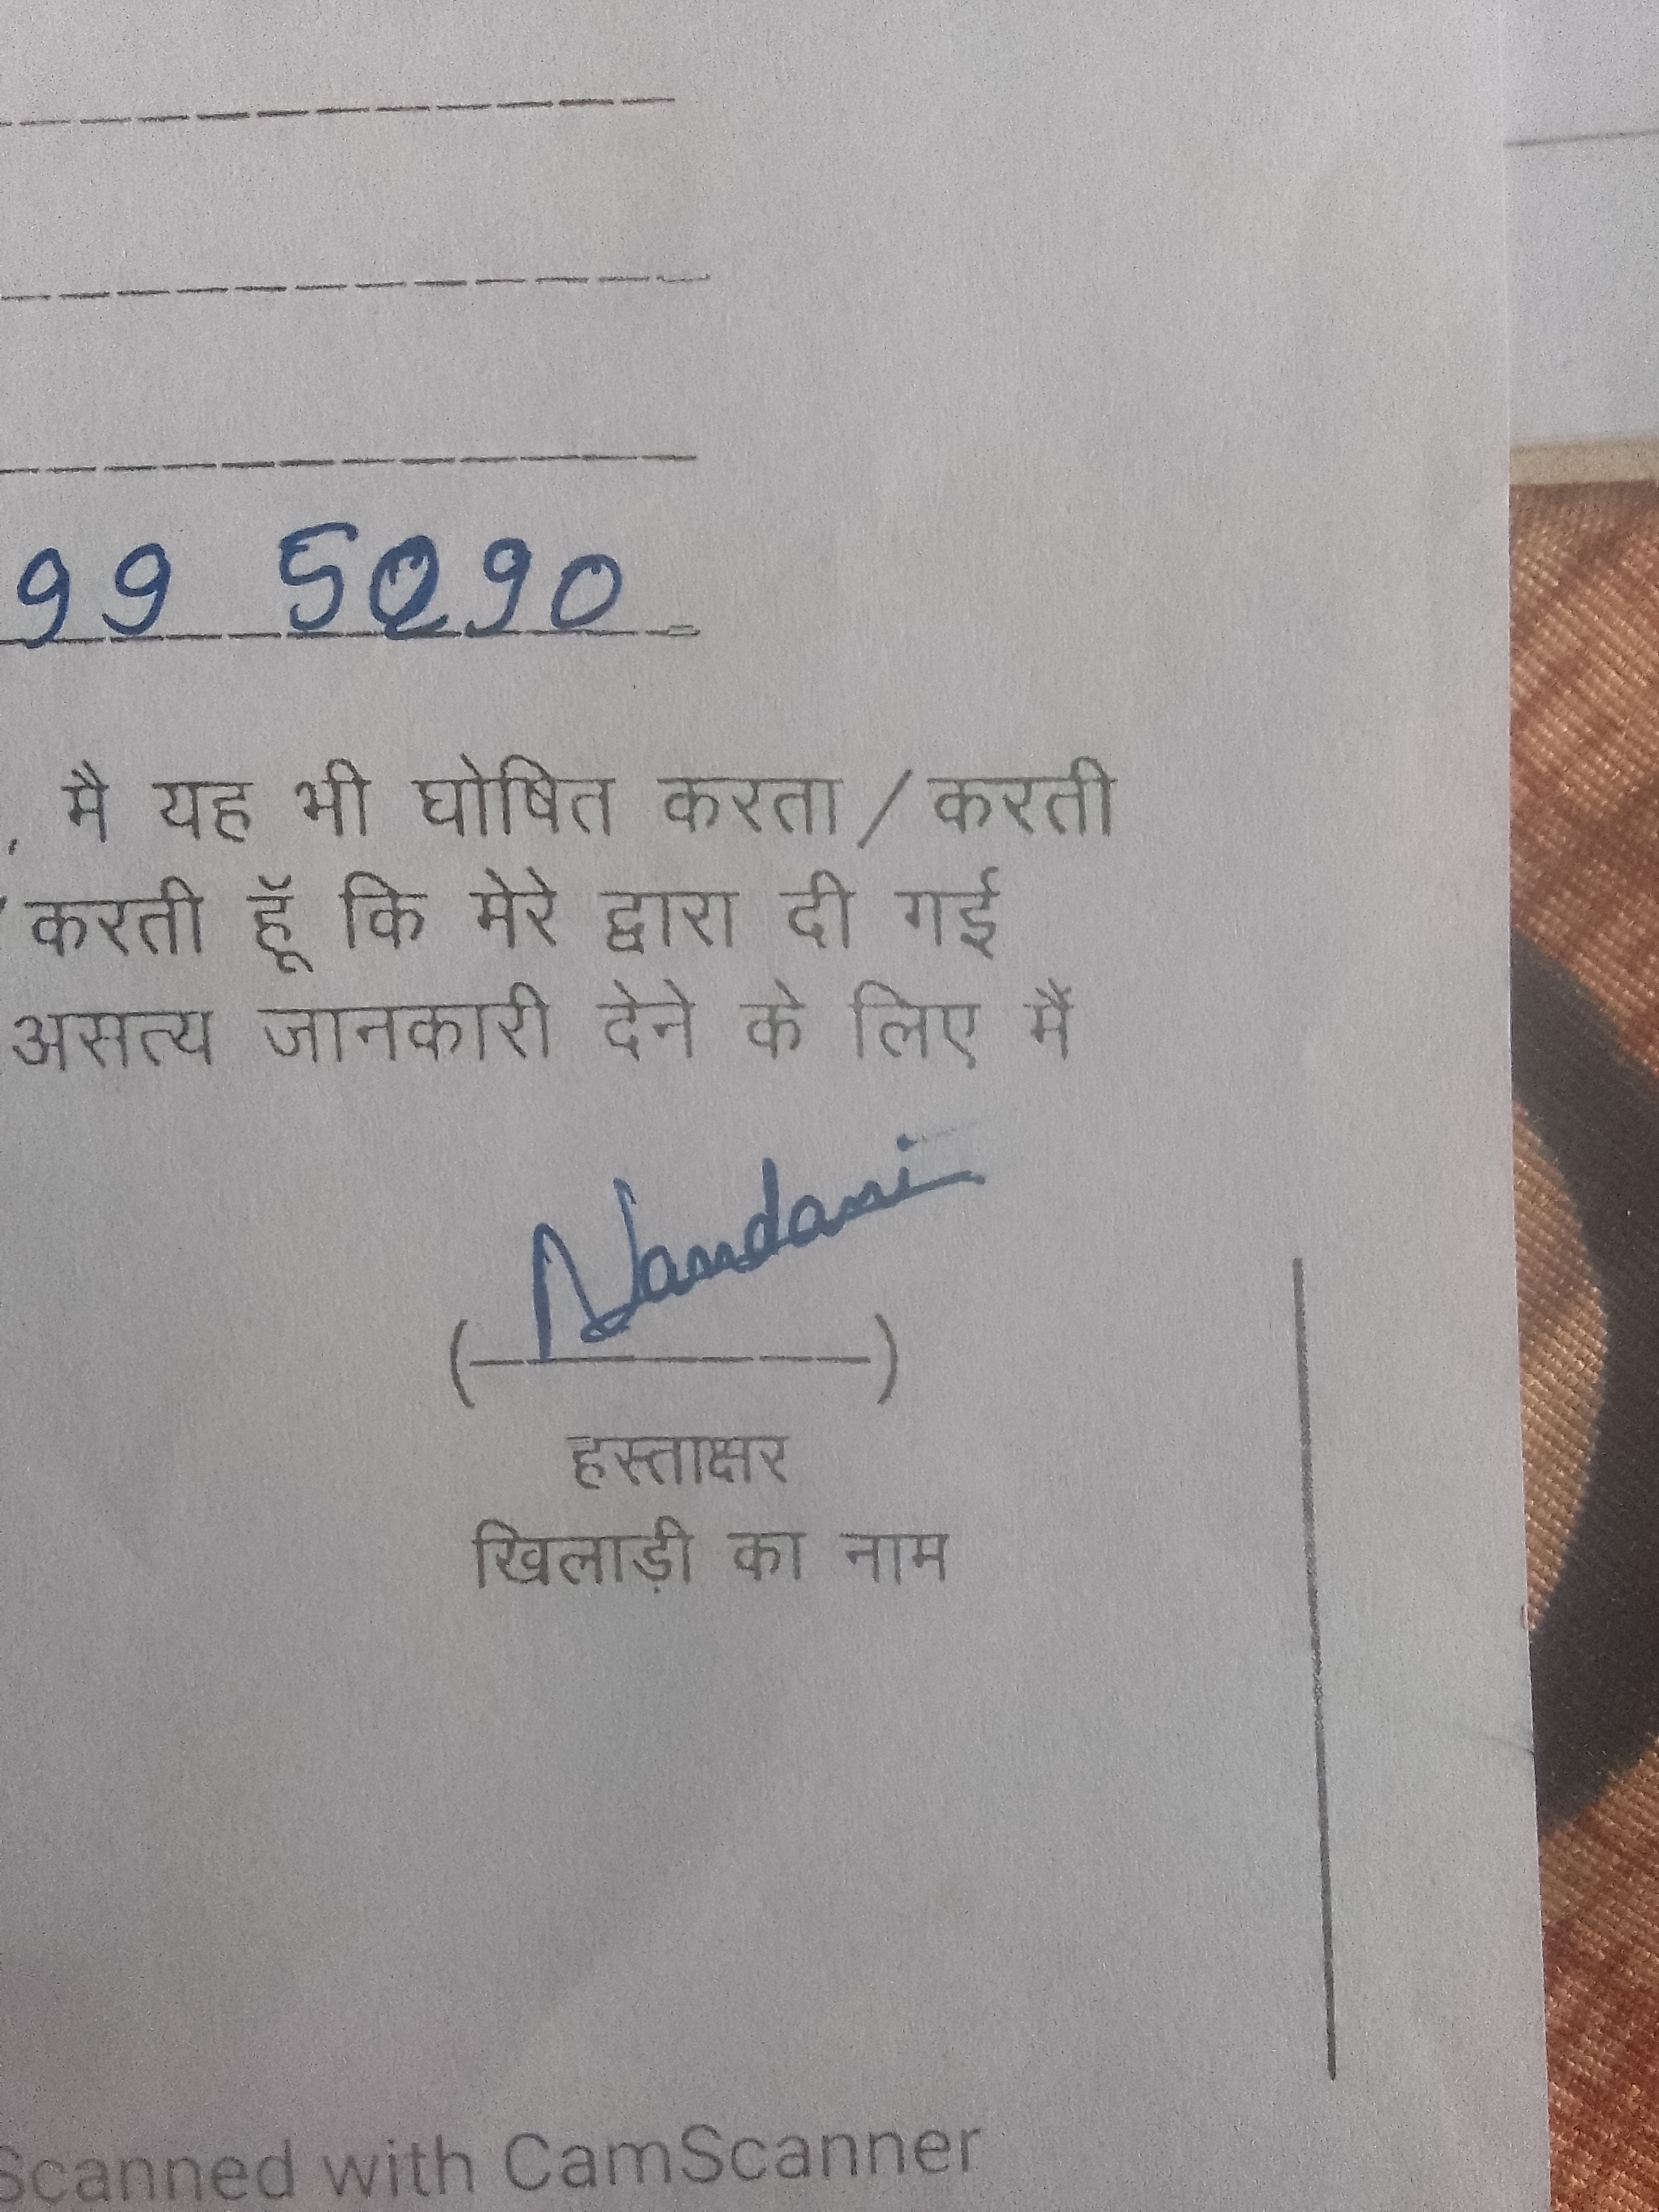 99 5290
, मै यह भी घोषित करता/करती
करती हूॅ कि मेरे द्वारा दी गई
असत्य जानकारी देने के लिए मैं
Nandani
(— — — — —)
हस्ताक्षर
खिलाड़ी का नाम
Scanned with CamScanner